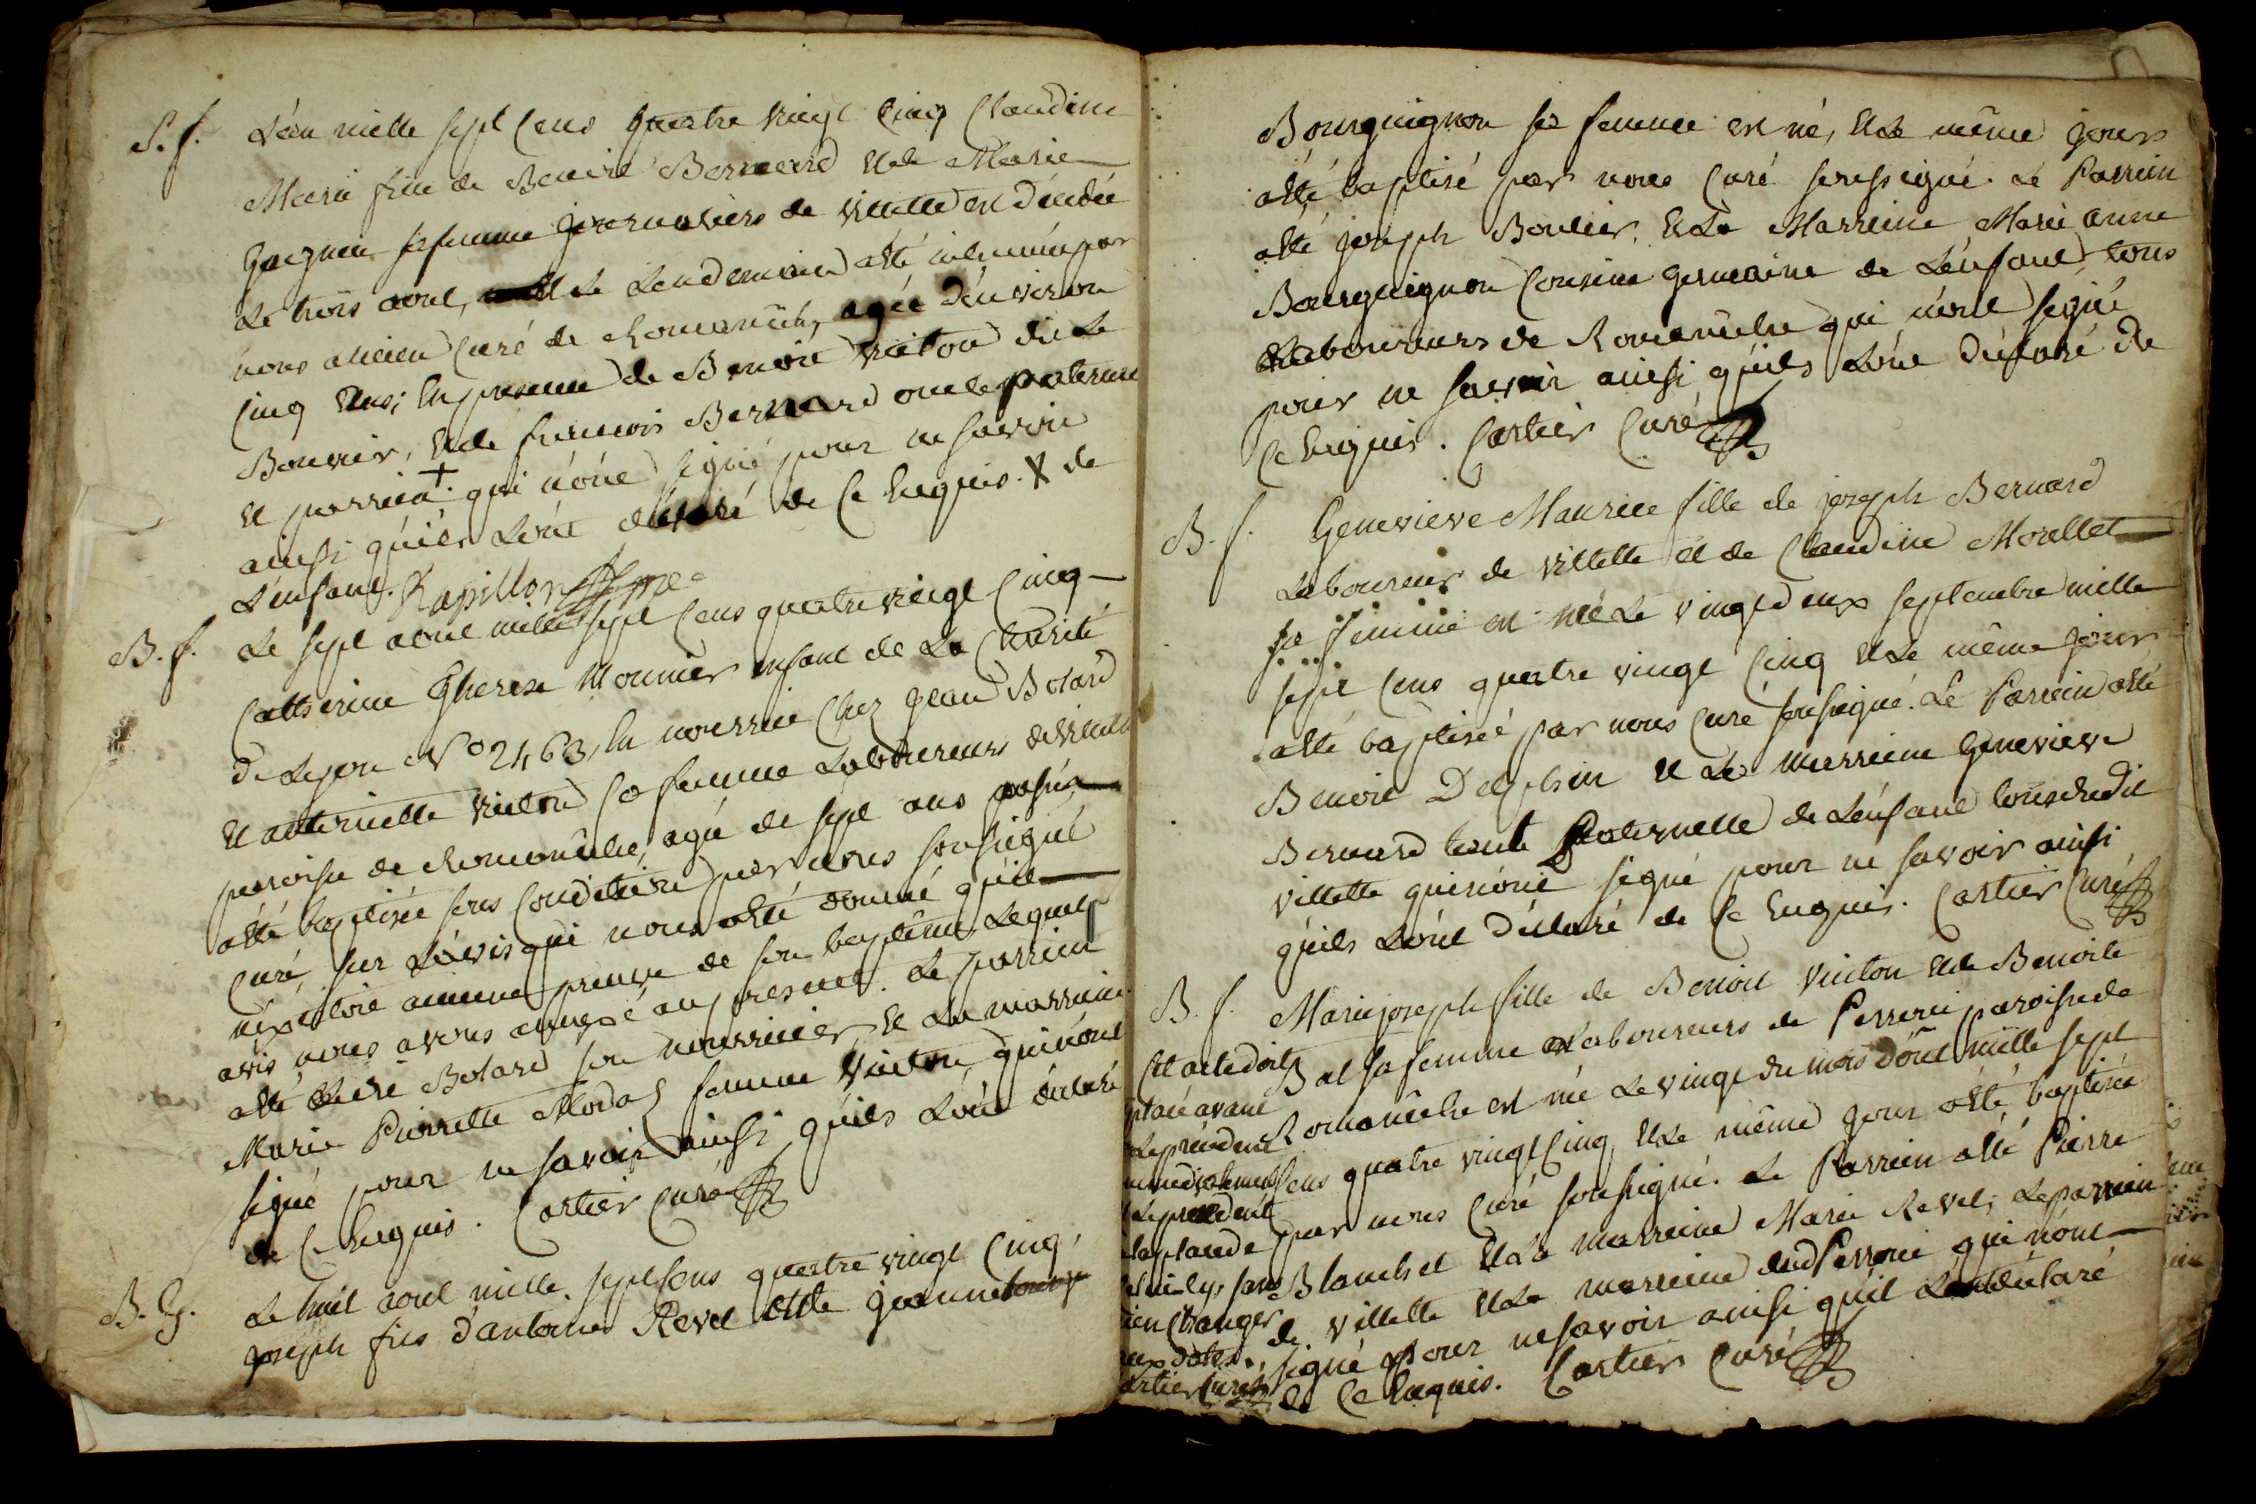 S. f. L'an mille sept cens quatre vingt cinq Claudine
Marie fille de Benoit Bernard et de Marie
sa femme journaliers de villette est décédée
le trois aout, et le lendemain a été inhumée par
nous ancien curé de Romanèche, agée d'environ
cinq ans; en presence de Benoit Vieton dit le
Bouvier, et de francois Bernard oncle paternel
et parrein + qui n'ont signé pour ne savoir
ainsi qu'ils l'ont déclaré de ce enquis. X de
l'enfant. Papillon
B. f. Le sept aout mille sept cens quatre vingt cinq
Catherine Therese Mounier enfant de la Charité
de Lyon N° 2463, en nourrice chez jean Botard
et antoinette Vieton sa femme laboureurs de villette
paroisse de Romanèche, agée de sept ans passés
a été baptisée sous condition par nous soussigné
curé, sur l'avis qui nous a été donné qu'il
n'existoit aucune preuve de son baptême, lequel
avis nous avons annexé au present. Le parrein
a été Botard son nourricier, et la marreine
Marie Pierrette femme Vieton, qui n'ont
signé pour ne savoir ainsi qu'ils l'ont déclaré
de ce enquis. Cartier Curé
B. G. Le huit aout mille sept cens quatre vingt cinq,
joseph fils d'antoine Revel et de jeanne
Bourguignon sa femme est né, et le même jour
a été baptisé par nous curé soussigné. Le Parrein
a été joseph Bouvier, et la Marreine Marie anne
Bourguignon Cousine germaine de l'enfant, tous
Laboureurs de Romanèche qui n'ont signé
pour ne savoir ainsi qu'ils l'ont déclaré de
ce enquis. Cartier Curé
B. f. Genevieve Maurice fille de joseph Bernard
Laboureur de villette et de Claudine Morellet
sa femme est née le vingt deux septembre mille
sept cens quatre vingt cinq et le même jour
a été baptisée par nous curé soussigné. Le Parrein a été
Benoit Delphin et la marreine Genevieve
Bernard tante Paternelle de l'enfant tous dudit
villette qui n'ont signé pour ne savoir ainsi
qu'ils l'ont déclaré de ce enquis. Cartier Curé
B. f. Marie joseph fille de Benoit Vieton et de Benoite
Bal sa femme Laboureurs de Perroni paroisse de
Romanèche est née le vingt du mois d'aout mille sept
cens quatre vingt cinq, et le même jour a été baptisée
par nous curé soussigné. Le Parrein a été Pierre
Blanchet et la marreine Marie Revel, le parrein
de villette et la marreine dud Perroni qui n'ont
signé pour ne savoir ainsi qu'il l'ont déclaré
de ce enquis. Cartier Curé
Cet acte doit
placé avant
le precedent
immediatement
le precedent
sans
rien changer
aux dates.
Cartier Curé